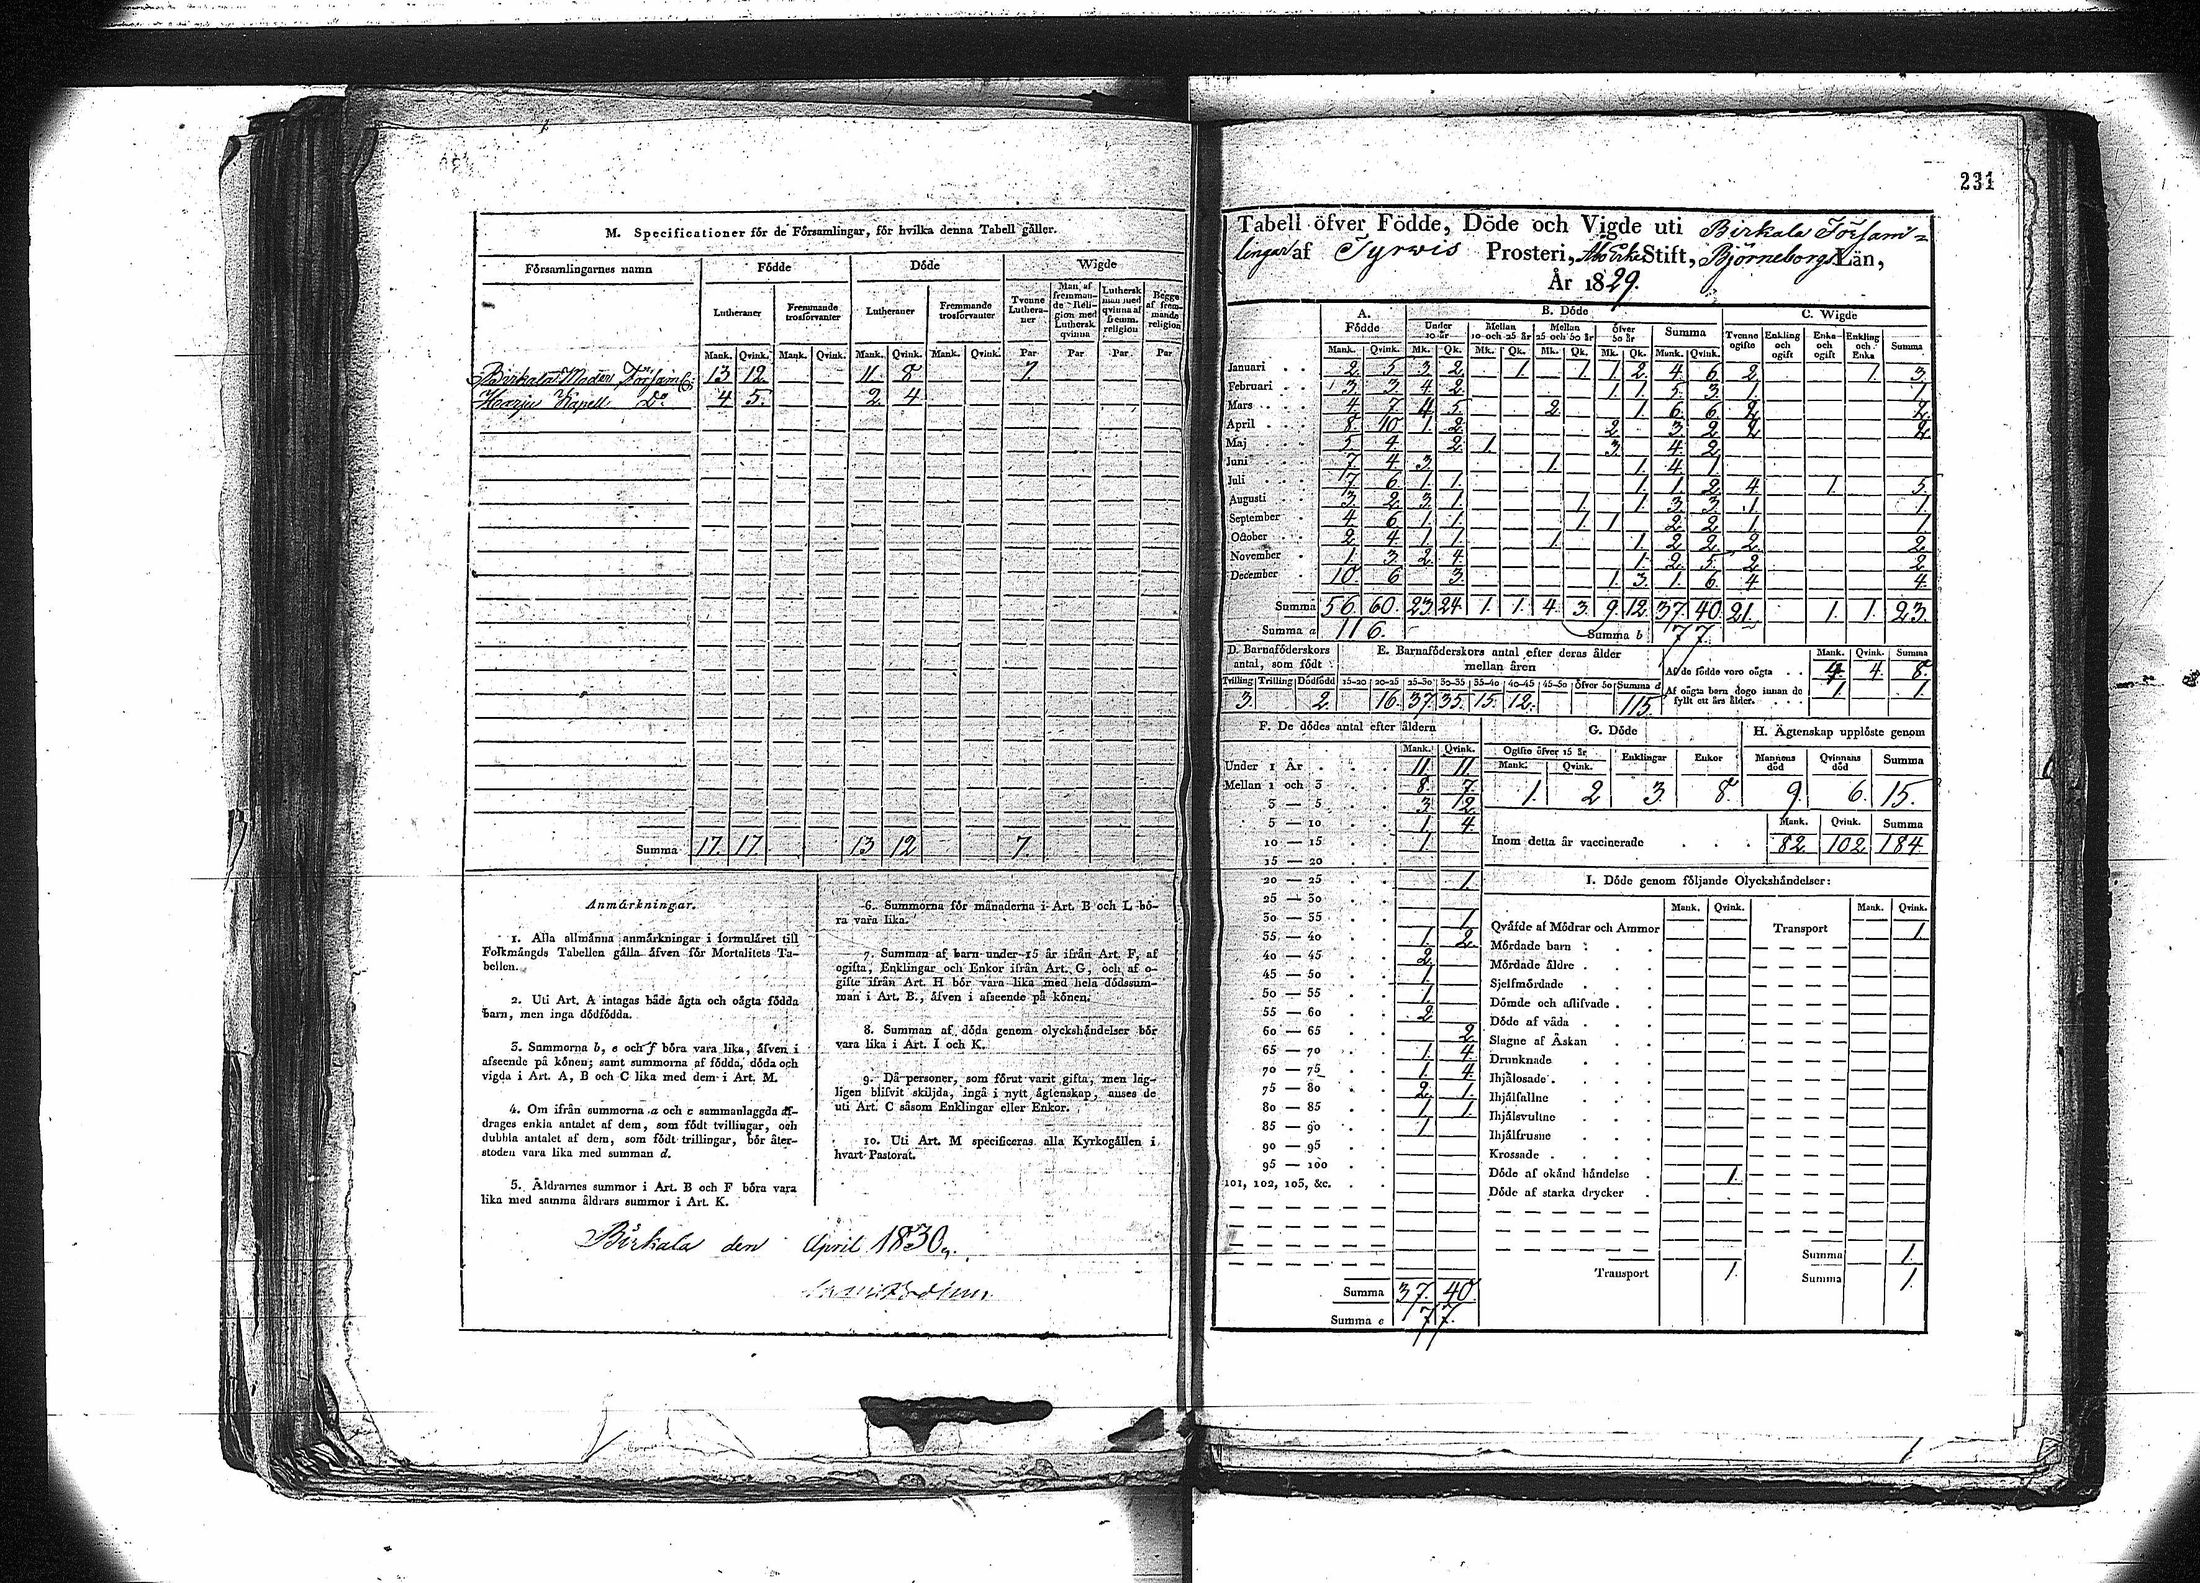 231
M. Specificationer för de Församlingar, för hvilka denna Tabell gäller.
Församlingarnes namn | Födde | Döde | Wigde
Lutheraner | Fremmande trosförvanter | Lutheraner | Fremmande trosförvanter | Tvenne Lutheraner | Man af fremmande Religion med Luthersk qvinna | Luthersk man med qvinna af fremm. religion | Begge af fremmande religion
Mank. Qvink. Mank. Qvink. Mank. Qvink. Mank. Qvink. Par Par Par Par
Birkala Moder Församl. 13 12. 11. 8 7.
Harju Kapell Do 4 5. 2 4
Summa 17. 17. 13 12 7.
Anmärkningar.
1. Alla allmänna anmärkningar i formuläret till
Folkmängds Tabellen gälla äfven för Mortalitets Ta-
bellen.
2. Uti Art. A intagas både ägta och oägta födda
barn, men inga dödfödda.
3. Summorna b, e och f böra vara lika, äfven i
afseende på könen; samt summorna af födda, döda och
vigda i Art. A, B och C lika med dem i Art. M.
4. Om ifrån summorna a och c sammanlaggda af-
drages enkla antalet af dem, som födt tvillingar, och
dubbla antalet af dem, som födt trillingar, bör åter-
stoden vara lika med summan d.
5. Åldrarnes summor i Art. B och F böra vara
lika med samma åldrars summor i Art. K.
6. Summorna för månaderna i Art. B och L bö-
ra vara lika.
7. Summan af barn under 15 år ifrån Art. F, af
ogifta, Enklingar och Enkor ifrån Art. G, och af o-
gifte ifrån Art. H bör vara lika med hela dödssum-
man i Art. B., äfven i afseende på könen.
8. Summan af döda genom olyckshändelser bör
vara lika i Art. I och K.
9. Då personer, som förut varit gifta, men lag-
ligen blifvit skiljda, ingå i nytt ägtenskap, anses de
uti Art. C såsom Enklingar eller Enkor.
10. Uti Art. M specificeras alla Kyrkogällen i
hvart Pastorat.
Birkala den April 1830.
Tabell öfver Födde, Döde och Vigde uti Birkala Församl=
lingar af Tyrvis Prosteri, Åbo Erke Stift, Björneborgs Län,
År 1829.
A. Födde | B. Döde | C. Wigde
Under 10 år | Mellan 10 och 25 år | Mellan 25 och 50 år | Öfver 50 år | Summa | Tvenne ogifte | Enkling och ogift | Enka och ogift | Enkling och Enka | Summa
Mank. Qvink. Mk. Qk. Mk. Qk. Mk. Qk. Mk. Qk. Mank. Qvink.
Januari 2 5 3 2 1. 1. 1 2 4 6 2 1. 3
Februari 3 3 4 2 1 1. 5. 3 1 1
Mars 4 7 4 5 2 1. 6. 6. 2 2
April 8. 10 1. 2 2 3 2 2 2
Maj 5 4 2 1. 3 4 2
Juni 7 4 3 1. 1. 4 1.
Juli 7 6 1. 1. 1 1. 2 4 1. 5
Augusti 3 2 3 1. 1 1. 3 3 1 1
September 4 6 1. 1. 1. 1 2 2 1. 1
October 2 4. 1. 1. 1. 1. 2 2 2. 2
November 1. 3 2 4 1. 2. 5. 2 2
December 10. 6 3. 1. 3. 1. 6. 4 4.
Summa 56. 60. 23 24. 1. 1. 4. 3. 9. 12. 37 40 21. 1. 1. 23.
Summa a 116. Summa b 77.
D. Barnaföderskors antal, som födt | E. Barnaföderskors antal efter deras ålder mellan åren
Tvilling Trilling Dödfödd 15-20 20-25 25-30 30-35 35-40 40-45 45-50 öfver 50 Summa d
3. 2. 16. 37. 35. 15. 12. 115.
Mank. Qvink. Summa
Af de födde voro oägta 4 4. 8.
Af oägta barn dogo innan de fyllt ett års ålder. 1. 1.
F. De dödes antal efter åldern
Mank. Qvink.
Under 1 År 11 11
Mellan 1 och 3 8. 7.
3 — 5 3 12
5 — 10 1. 4
10 — 15 1.
15 — 20
20 — 25 1.
25 — 30
30 — 35 1.
35 — 40 1. 2.
40 — 45 2.
45 — 50 1.
50 — 55 1.
55 — 60 2
60 — 65 2
65 — 70 1. 4
70 — 75 1. 4.
75 — 80 2. 1.
80 — 85 1 1.
85 — 90 1
90 — 95
95 — 100
101, 102, 103, &c.
Summa 37. 40.
Summa e 77.
G. Döde
Ogifte öfver 15 år | Enklingar | Enkor
Mank. Qvink.
1. 2 3. 8.
H. Ägtenskap upplöste genom
Mannens död | Qvinnans död | Summa
9. 6. 15.
Mank. Qvink. Summa
Inom detta år vaccinerade 82. 102. 184.
I. Döde genom följande Olyckshändelser:
Mank. Qvink. Mank. Qvink.
Qväfde af Mödrar och Ammor Transport 1.
Mördade barn
Mördade äldre
Sjelfmördade
Dömde och aflifvade
Döde af våda
Slagne af Åskan
Drunknade
Ihjälosade
Ihjälfallne
Ihjälsvultne
Ihjälfrusne
Krossade
Döde af okänd händelse 1.
Döde af starka drycker
Summa 1.
Transport 1. Summa 1.